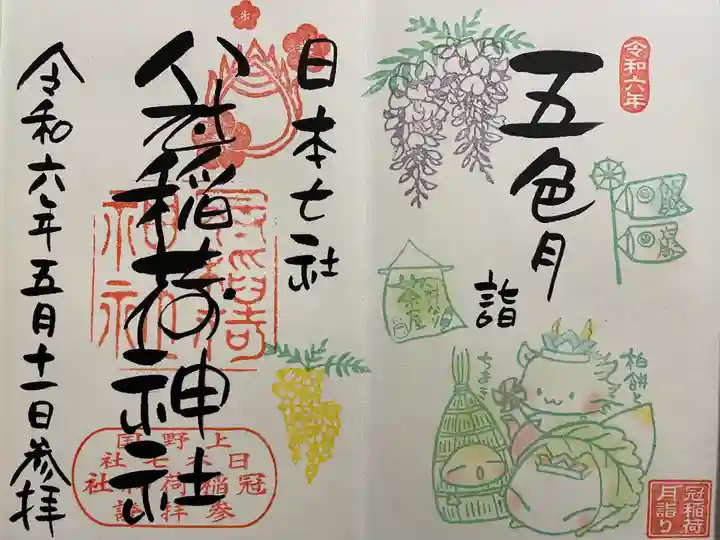 令和六年
五色月
詣
茶屋
柏餅と
ちまき
冠稲荷
月詣り
日本七社
冠稲荷神社
令和六年五月十一日参拝
上野国
日本七社
冠稲荷神社
参拝證